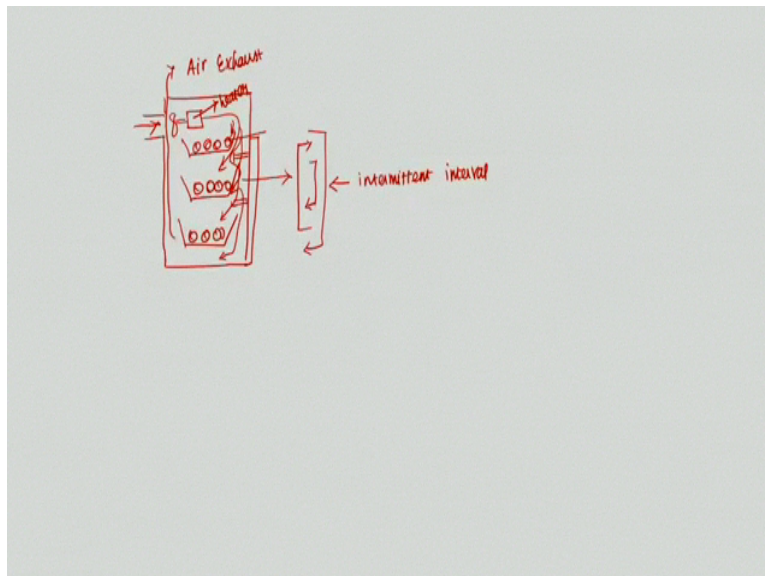 Air Exhaust
heater
intermittent interval